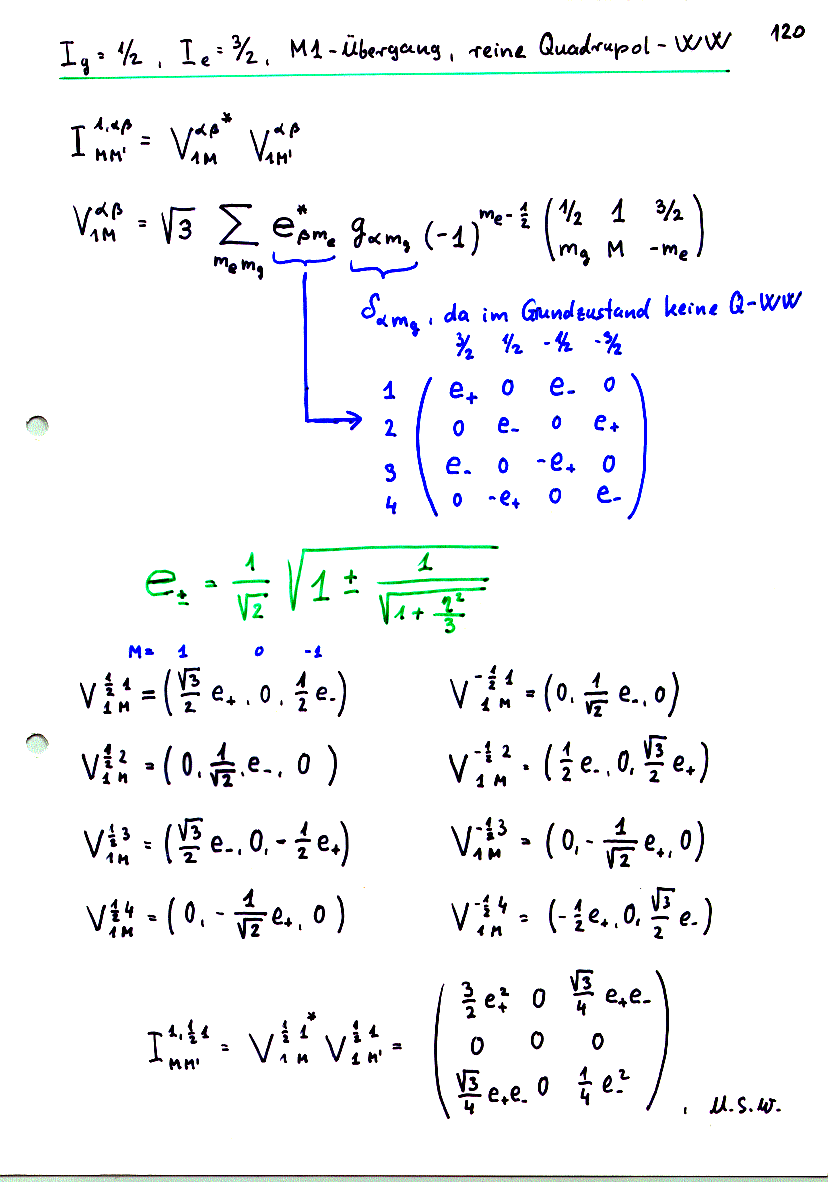 120
I_g = 1/2, I_e = 3/2, M1-Übergang, reine Quadrupol-WW
I^{1,αβ}_{MM'} = V^{αβ*}_{1M} V^{αβ}_{1M'}
V^{αβ}_{1M} = √3 ∑_{m_e m_g} e*_{βm_e} g_{αm_g} (-1)^{m_e-1/2} (1/2 1 3/2 ; m_g M -m_e)
δ_{αm_g}, da im Grundzustand keine Q-WW
3/2 1/2 -1/2 -3/2
1 ( e_+ 0 e_- 0 )
2 ( 0 e_- 0 e_+ )
3 ( e_- 0 -e_+ 0 )
4 ( 0 -e_+ 0 e_- )
e_± = 1/√2 √(1 ± 1/√(1+η²/3))
M= 1 0 -1
V^{1/2 1}_{1M} = (√3/2 e_+, 0, 1/2 e_-) V^{-1/2 1}_{1M} = (0, 1/√2 e_-, 0)
V^{1/2 2}_{1M} = (0, 1/√2 e_-, 0) V^{-1/2 2}_{1M} = (1/2 e_-, 0, √3/2 e_+)
V^{1/2 3}_{1M} = (√3/2 e_-, 0, -1/2 e_+) V^{-1/2 3}_{1M} = (0, -1/√2 e_+, 0)
V^{1/2 4}_{1M} = (0, -1/√2 e_+, 0) V^{-1/2 4}_{1M} = (-1/2 e_+, 0, √3/2 e_-)
I^{1,1/2 1}_{MM'} = V^{1/2 1*}_{1M} V^{1/2 1}_{1M'} = ( 3/2 e_+² 0 √3/4 e_+e_- ; 0 0 0 ; √3/4 e_+e_- 0 1/4 e_-² ), u.s.w.